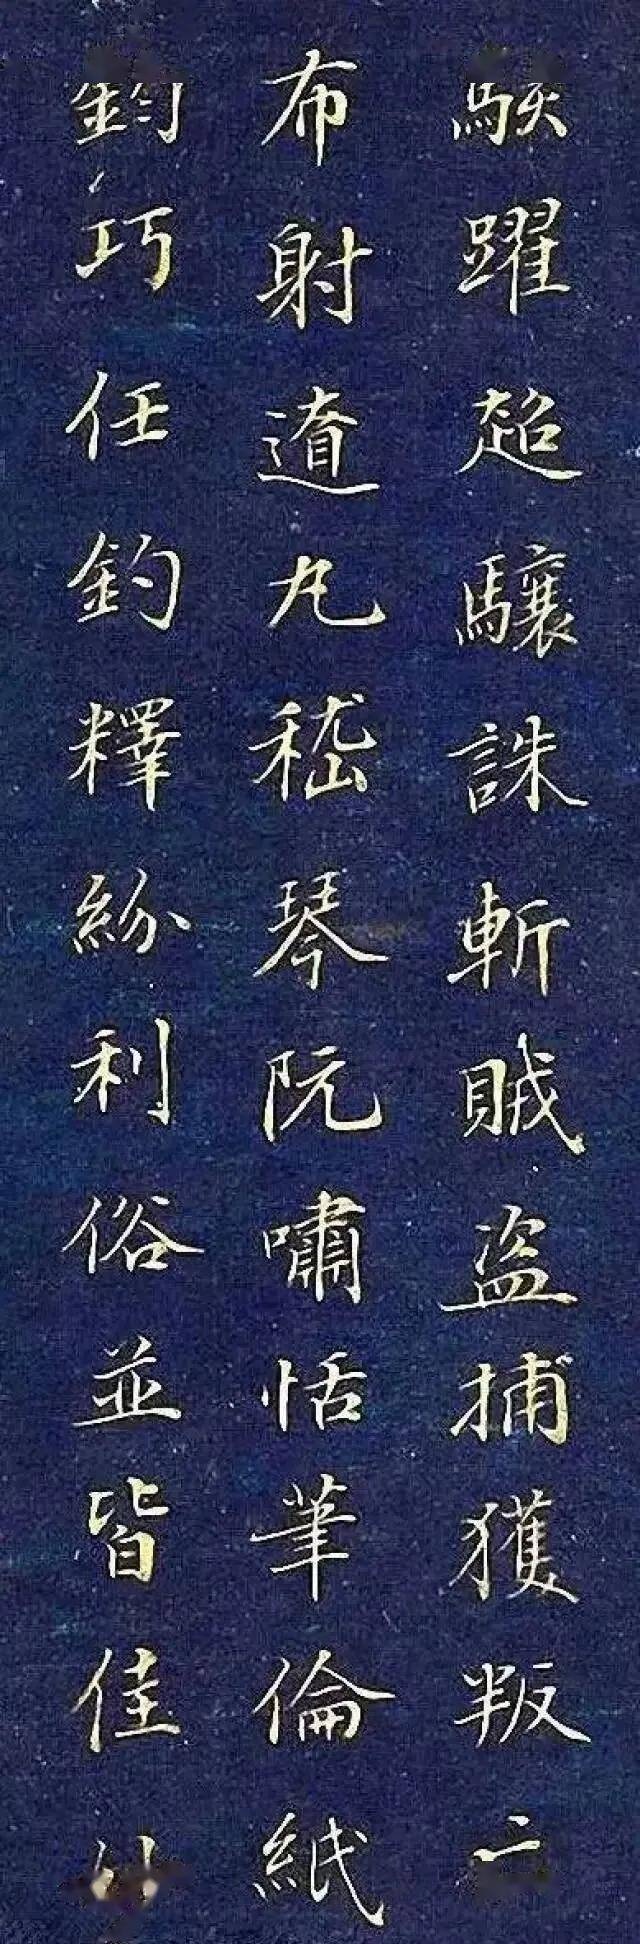 駭躍超驤誅斬賊盜捕獲叛亡
布射遼丸嵇琴阮嘯恬筆倫紙
鈞巧任釣釋紛利俗並皆佳妙